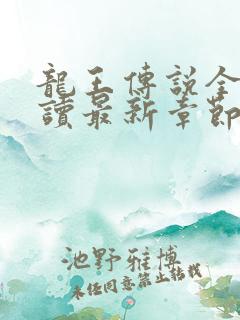 龍王傳說全
讀最新章節
池野雅博
未经同意禁止转载